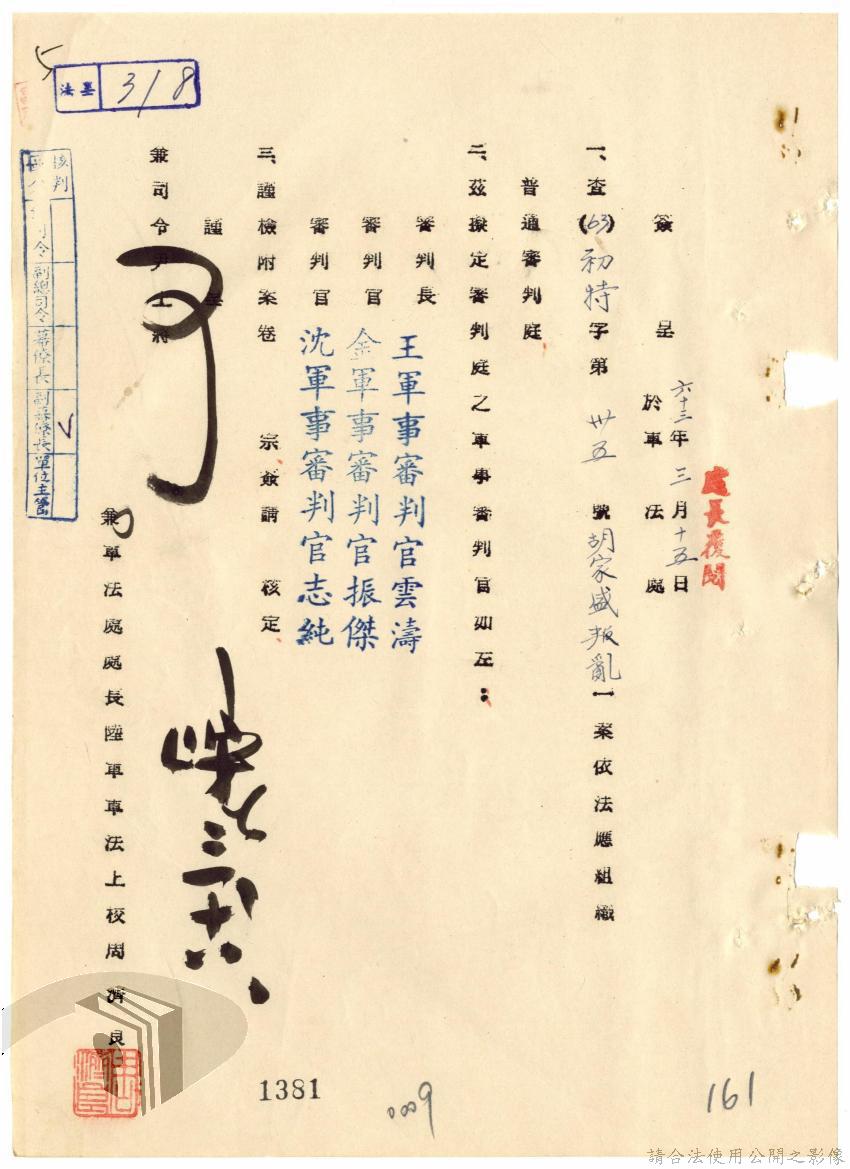 處長覆閱
簽呈 六十三年三月十五日
於軍法處
一、查(63)初特字第卅五號胡家盛叛亂一案依法應組織
普通審判庭
二、茲擬定審判庭之軍事審判官如左：
審判長 王軍事審判官雲濤
審判官 金軍事審判官振傑
審判官 沈軍事審判官志純
三、謹檢附案卷宗簽請核定
謹呈
兼司令尹上將
兼軍法處處長陸軍軍法上校周濟良
可
三十八
法墨 3/8
核判
司令
副總司令
幕僚長
副幕僚長
單位主管
1381
0009
161
請合法使用公開之影像